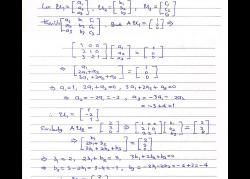 Let U₁ = [a₁ a₂ a₃], U₂ = [b₁ b₂ b₃], U₃ = [c₁ c₂ c₃]
[a₁ b₁ c₁
a₂ b₂ c₂
a₃ b₃ c₃]. But AU₁ = [1 0 0] ⇒
[1 0 0
2 1 0
3 2 1] [a₁ a₂ a₃] = [1 0 0]
⇒ [a₁
2a₁+a₂
3a₁+2a₂+a₃] = [1 0 0]
⇒ a₁ = 1, 2a₁+a₂ = 0, 3a₁+2a₂+a₃ = 0
⇒ a₂ = -2a₁ = -2, a₃ = -3a₁ - 2a₂
= -3+4 = 1
∴ U₁ = [1 -2 1]
AU₂ = [2 3 0] ⇒ [1 0 0
2 1 0
3 2 1] [b₁ b₂ b₃] = [2 3 0]
⇒ [b₁
2b₁+b₂
3b₁+2b₂+b₃] = [2 3 0]
⇒ b₁ = 2, 2b₁+b₂ = 3, 3b₁+2b₂+b₃ = 0